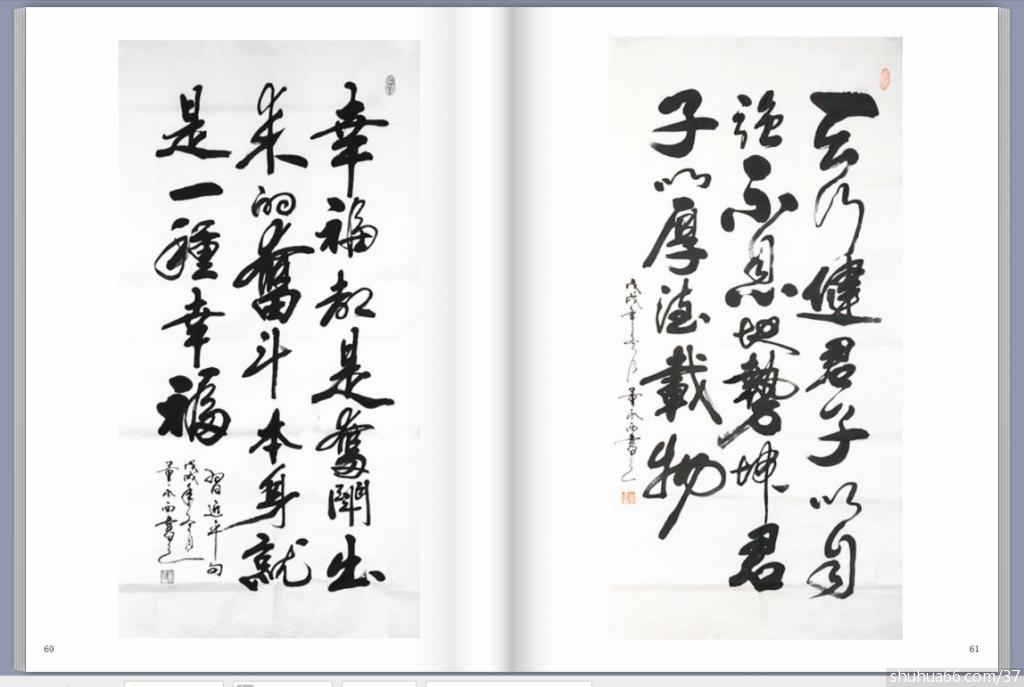 幸福都是奮鬪出
来的奮斗本身就
是一種幸福
習近平句
戊戌年冬月
董永西書之
60
天行健君子以自
強不息地勢坤君
子以厚德載物
戊戌年冬月董永西書之
61
shuhua66.com/37